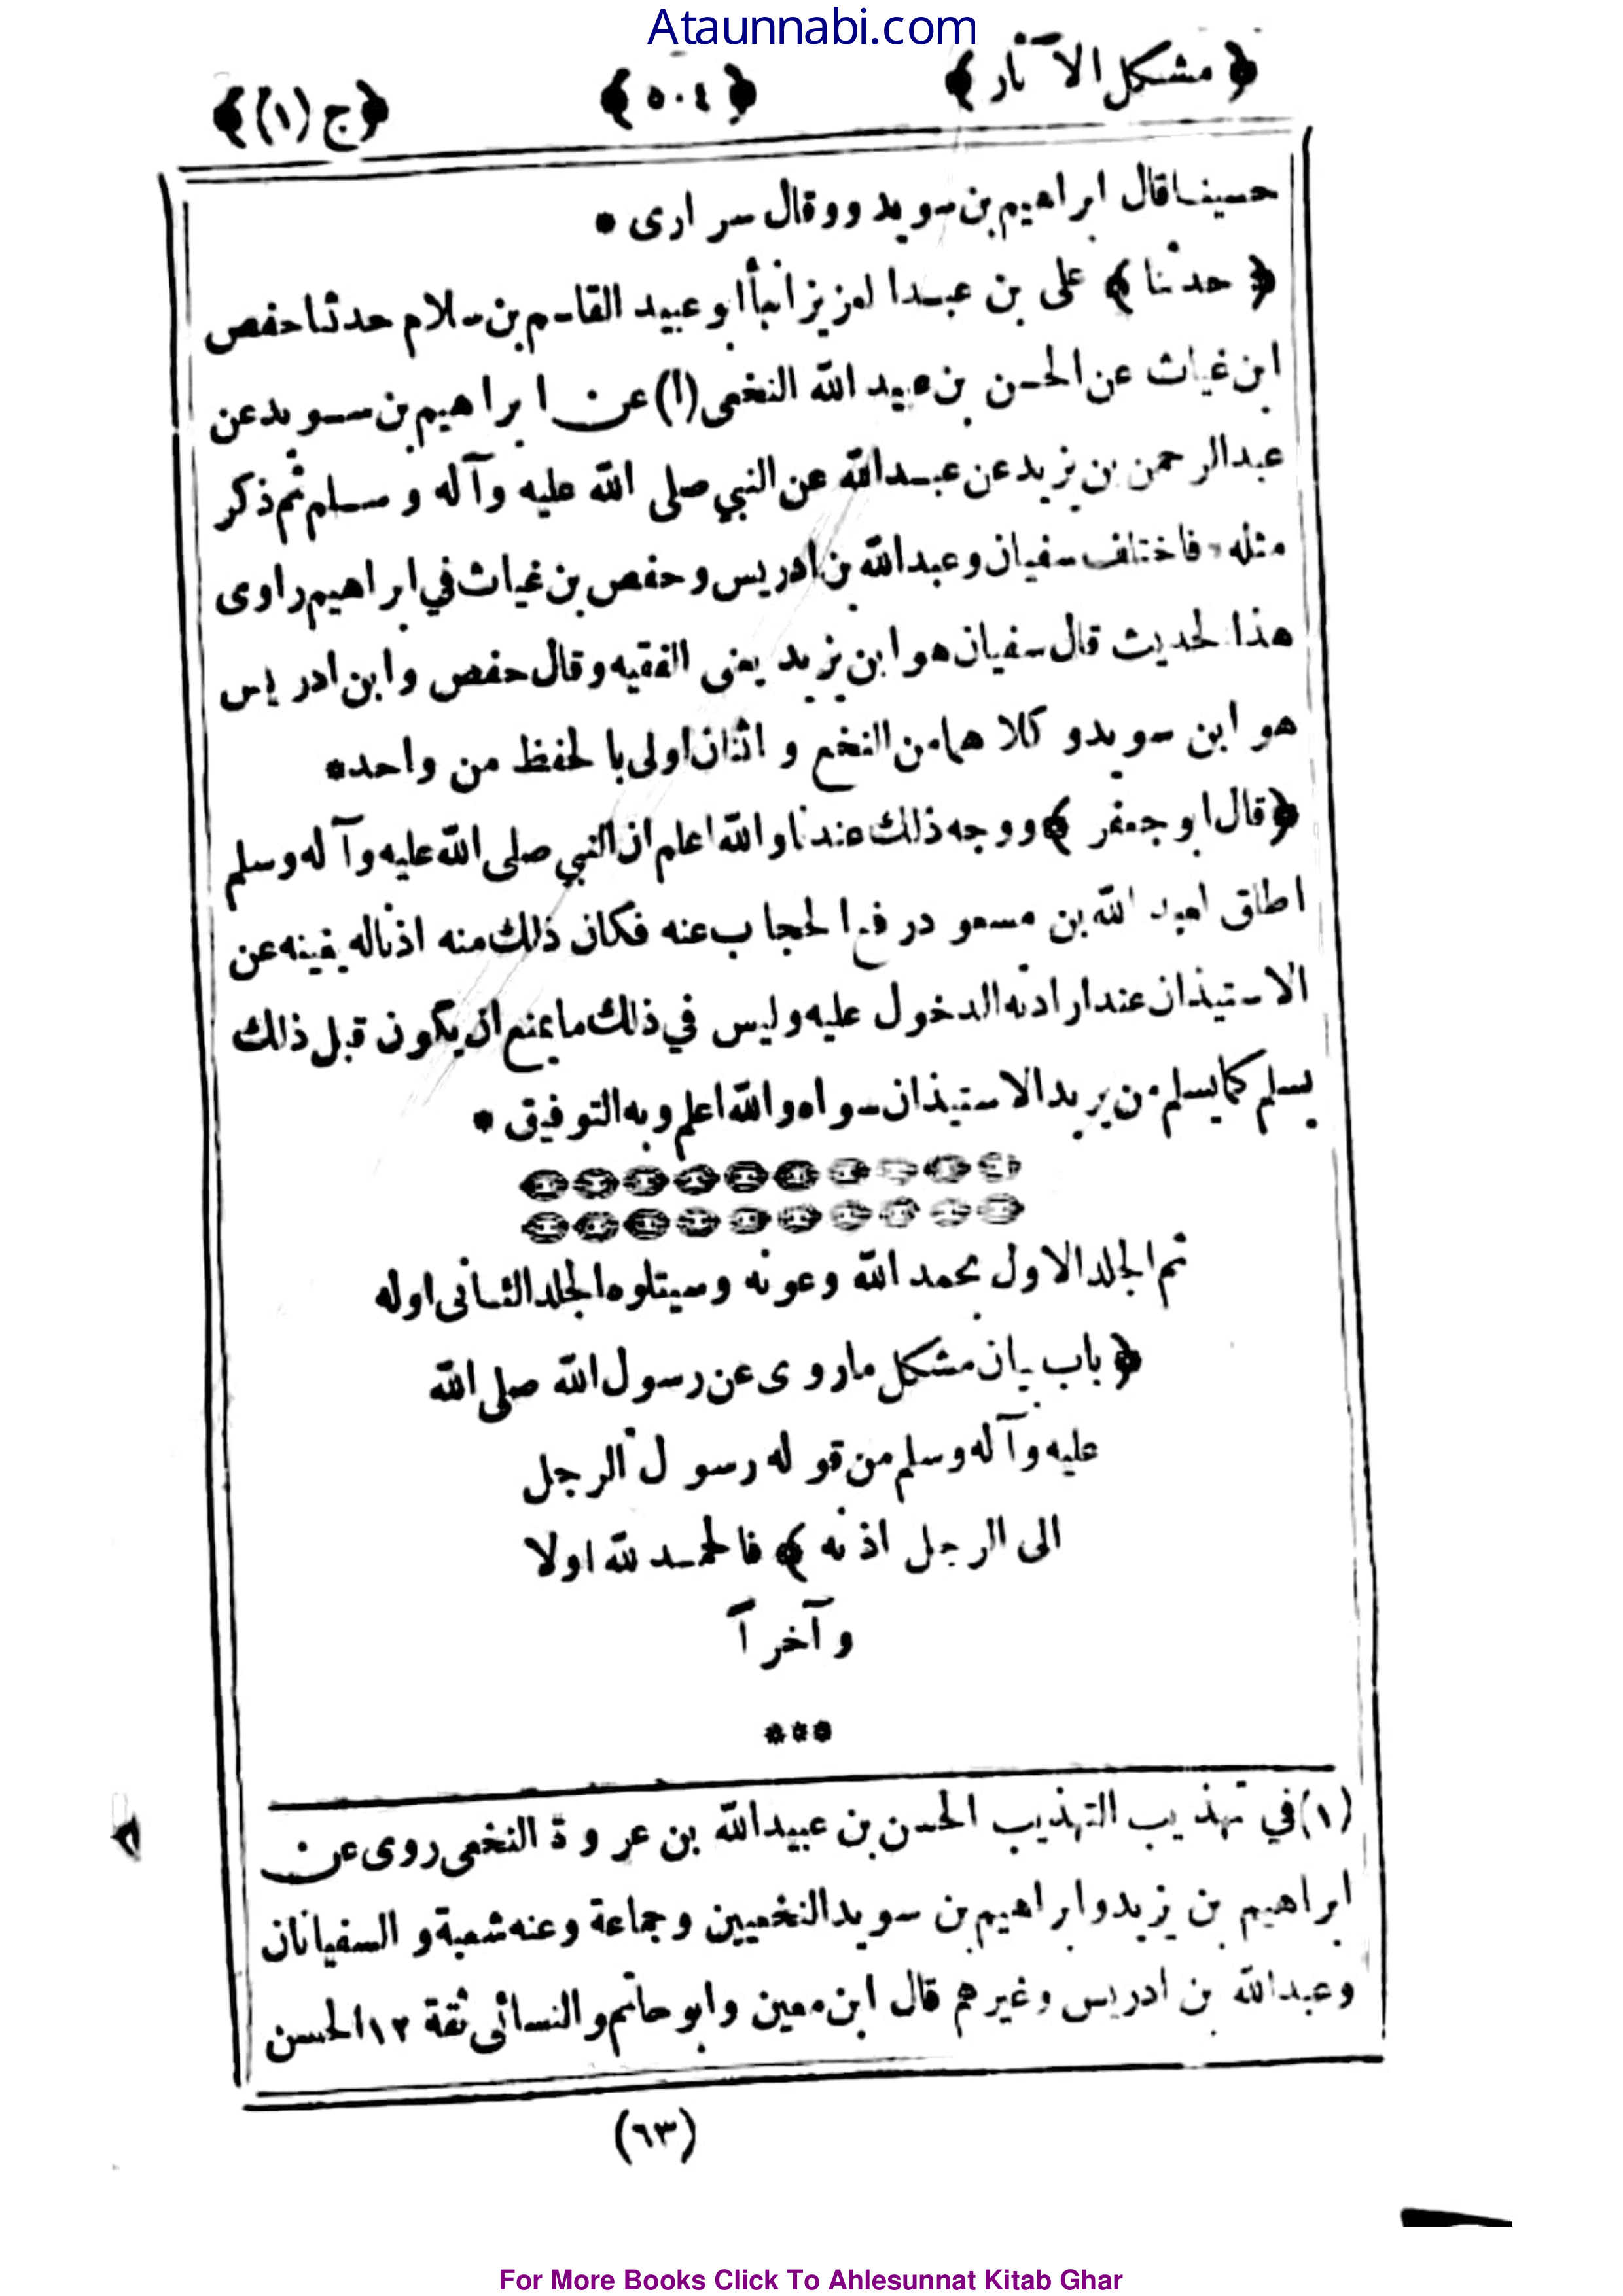 Ataunnabi.com
﴿ مشكل الآثار ﴾ ﴿ ٥٠٤ ﴾ ﴿ ج (١) ﴾
حسينا قال ابراهيم بن سويد ووقال سرارى *
﴿ حدثنا ﴾ على بن عبدالعزيز انبأ ابو عبيد القاسم بن سلام حدثنا حفص
ابن غياث عن الحسن بن عبيد الله النخعى (١) عن ابراهيم بن سويد عن
عبدالرحمن بن يزيد عن عبدالله عن النبي صلى الله عليه وآله وسلم ثم ذكر
مثله فاختلف سفيان وعبدالله بن ادريس وحفص بن غياث في ابراهيم راوى
هذا الحديث قال سفيان هو ابن يزيد يعنى الفقيه وقال حفص وابن ادريس
هو ابن سويد وكلاهما من النخع واثنان اولى بالحفظ من واحد*
﴿ قال ابو جعفر ﴾ ووجه ذلك عندنا والله اعلم ان النبي صلى الله عليه وآله وسلم
اطلق لعبد الله بن مسعود رفع الحجاب عنه فكان ذلك منه اذنا له يغنيه عن
الاستيذان عند ارادته الدخول عليه وليس في ذلك ما يمنع ان يكون قبل ذلك
يسلم كما يسلم من يريد الاستيذان سواه والله اعلم وبه التوفيق *
تم الجلد الاول بحمد الله وعونه وسيتلوه الجلد الثانى اوله
﴿ باب بيان مشكل ماروى عن رسول الله صلى الله
عليه وآله وسلم من قوله رسول الرجل
الى الرجل اذنه ﴾ فالحمد لله اولا
وآخراً
***
(١) في تهذيب التهذيب الحسن بن عبيدالله بن عروة النخعى روى عن
ابراهيم بن يزيد وابراهيم بن سويد النخعيين وجماعة وعنه شعبة و السفيانان
وعبدالله بن ادريس وغيرهم قال ابن معين وابو حاتم والنسائى ثقة ١٢ الحسن
(٦٣)
For More Books Click To Ahlesunnat Kitab Ghar